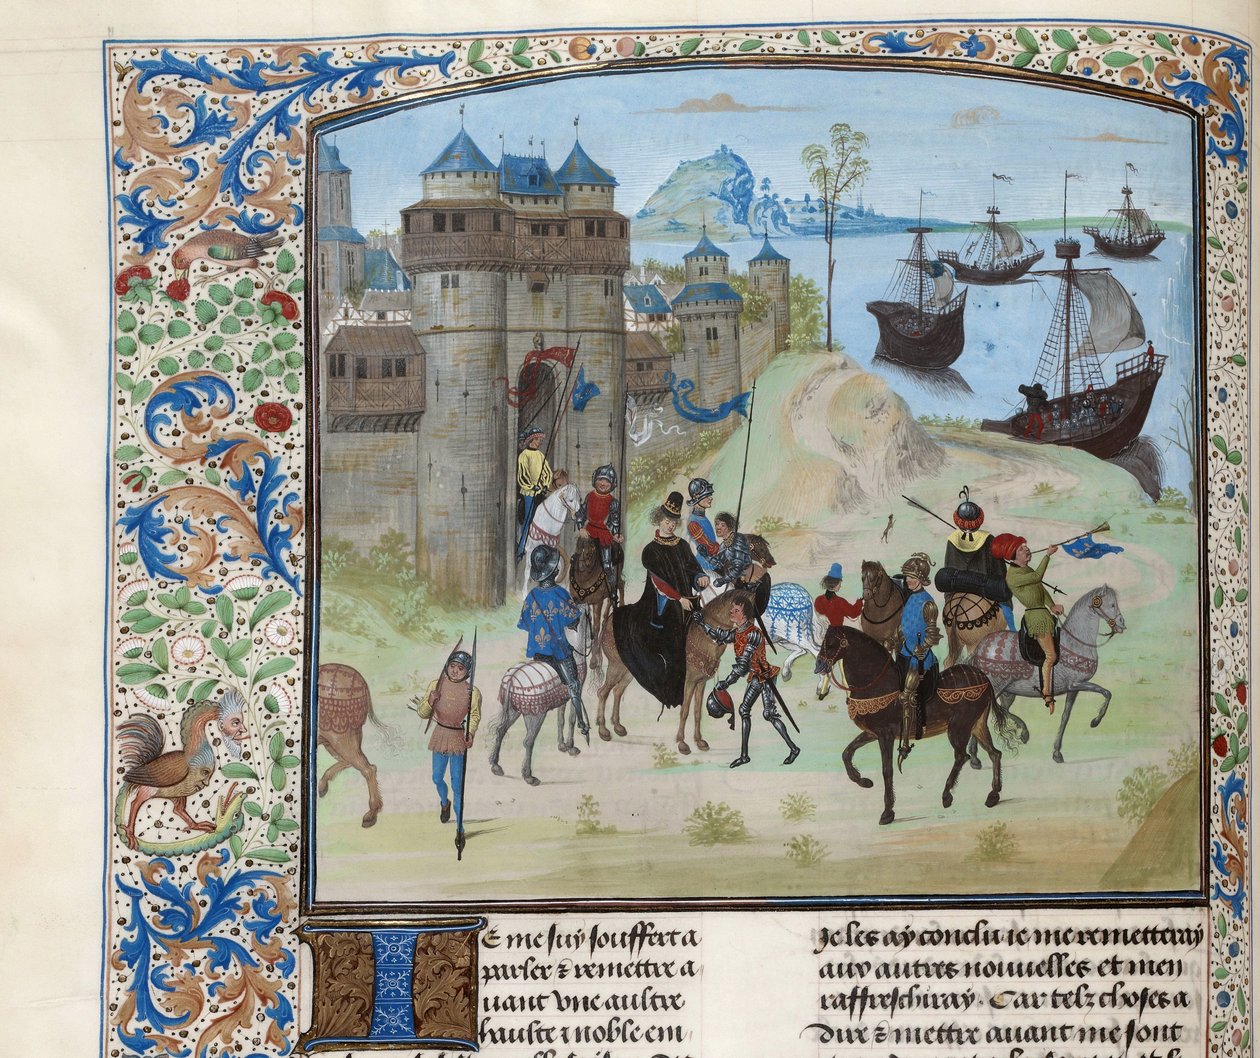 Je me suy souffert a
parler & remettre a
uant vne aultre
haulte & noble em
Je les ay conclu ie me remetteray
aux autres nouuelles et men
raffreschiray. Car telz choses a
dire & mettre auant me sont